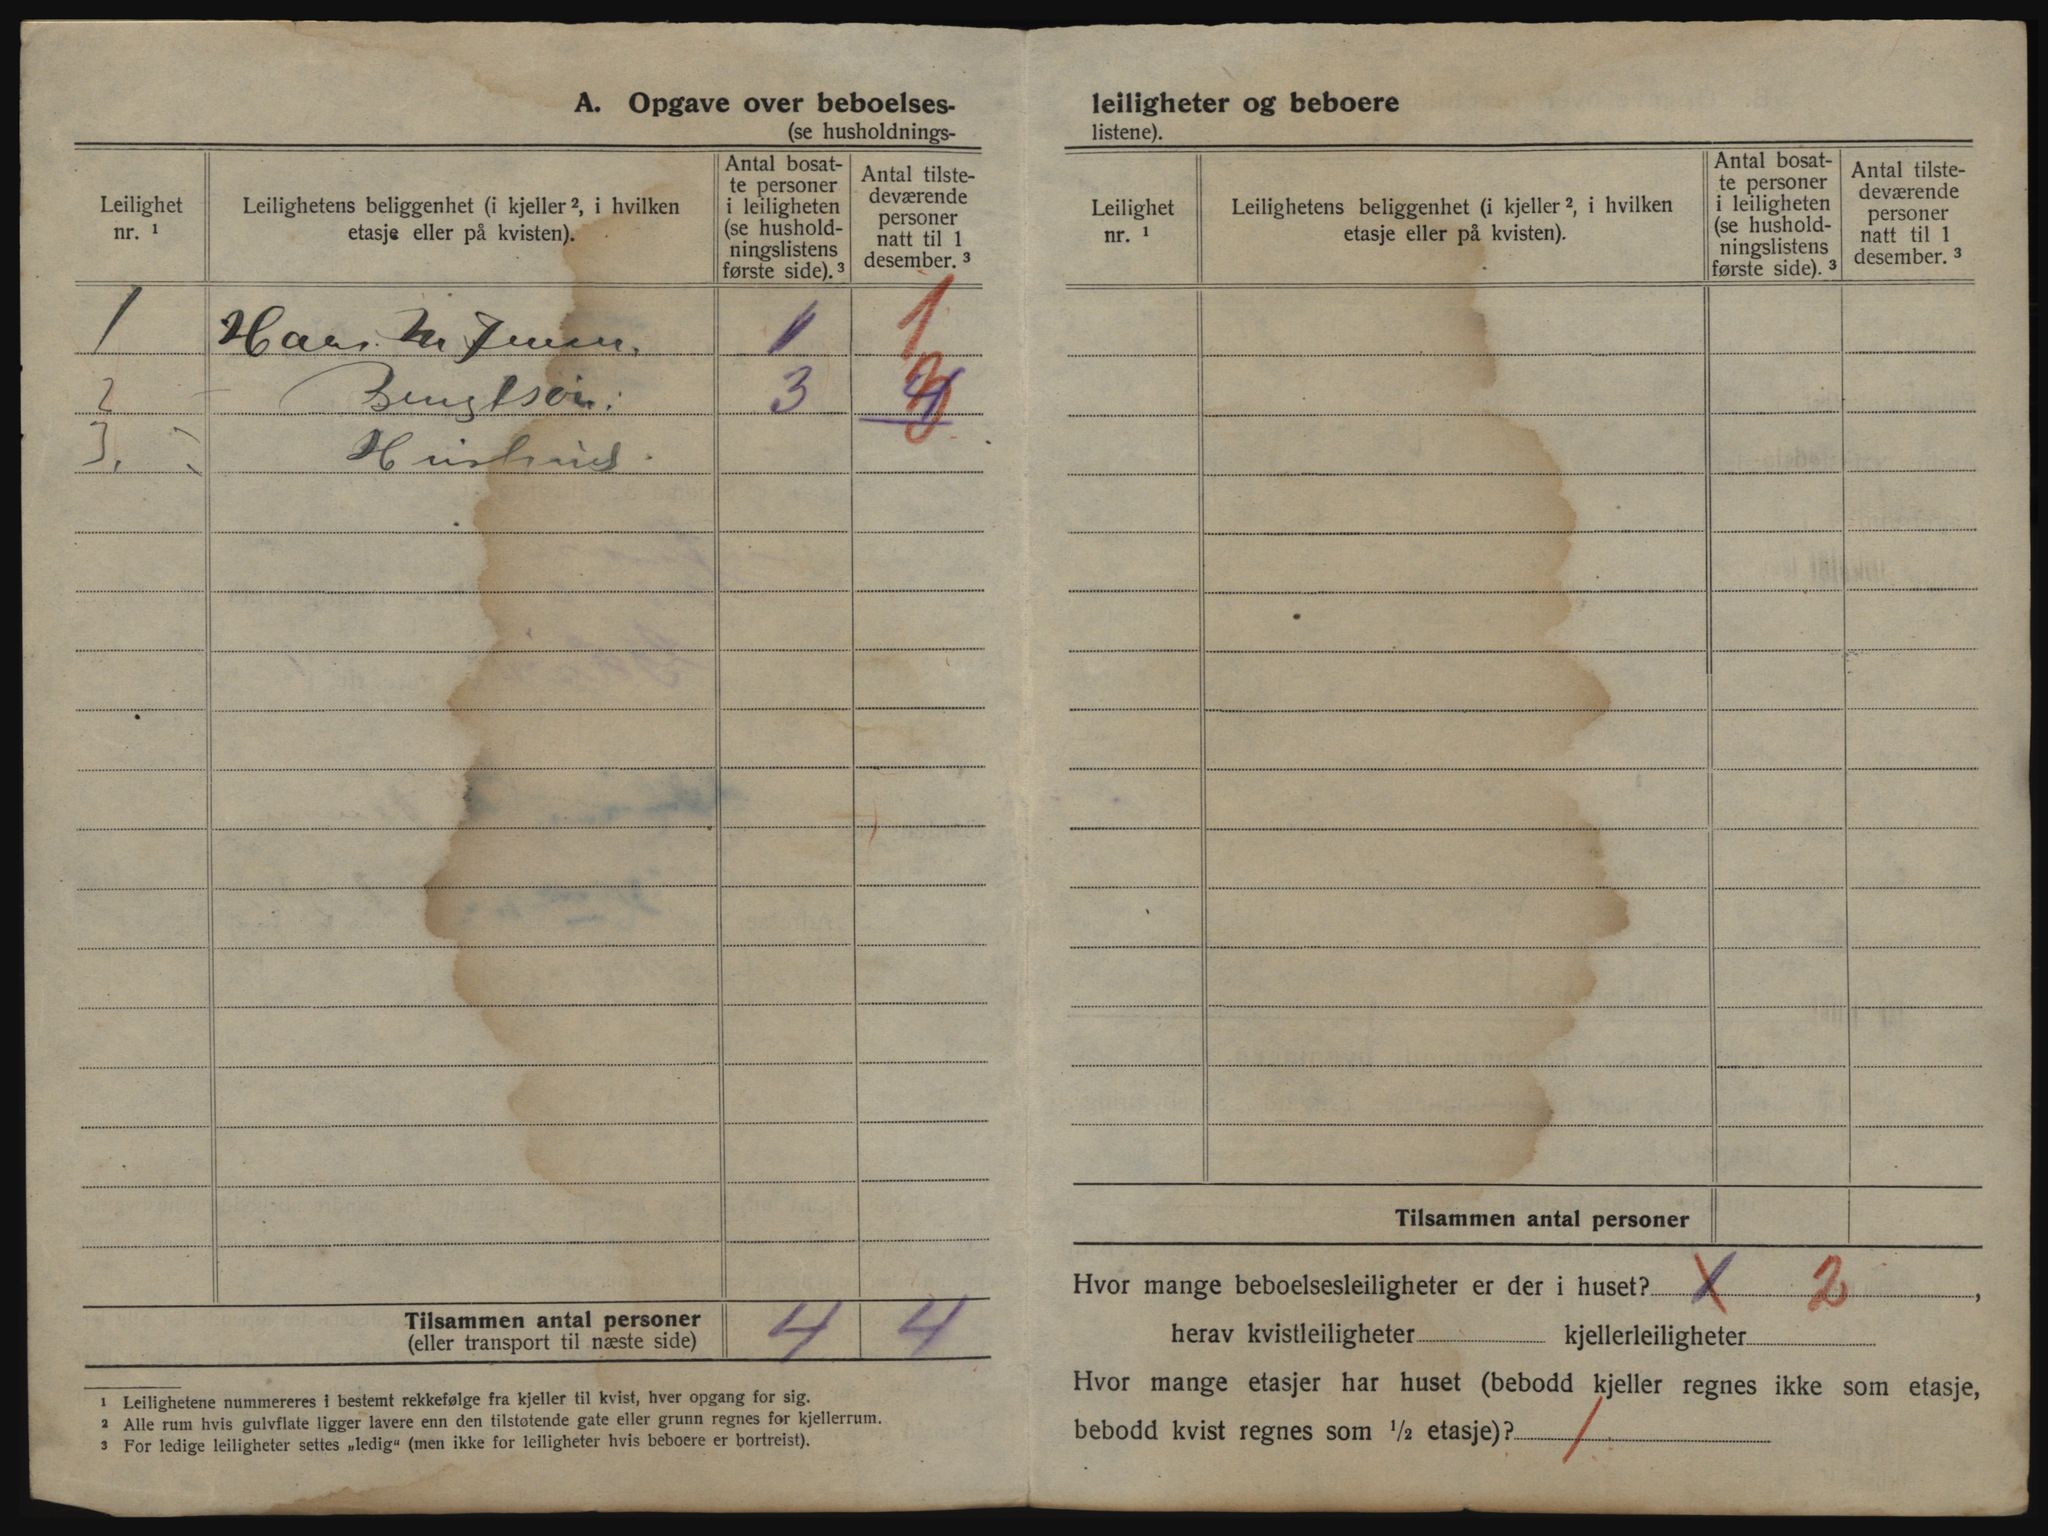 A. Opgave over beboelses-
(se husholdnings-
Leilighet nr. ¹
Leilighetens beliggenhet (i kjeller ², i hvilken etasje eller på kvisten).
Antal bosat-
te personer
i leiligheten
(se hushold-
ningslistens
første side). ³
Antal tilste-
deværende
personer
natt til 1
desember. ³
1 Hans M Jensen. 1 1
2 Bengtson. 3 4 3
3.
Tilsammen antal personer 4 4
(eller transport til næste side)
¹ Leilighetene nummereres i bestemt rekkefølge fra kjeller til kvist, hver opgang for sig.
² Alle rum hvis gulvflate ligger lavere enn den tilstøtende gate eller grunn regnes for kjellerrum.
³ For ledige leiligheter settes „ledig“ (men ikke for leiligheter hvis beboere er bortreist).
leiligheter og beboere
listene).
Leilighet nr. ¹
Leilighetens beliggenhet (i kjeller ², i hvilken etasje eller på kvisten).
Antal bosat-
te personer
i leiligheten
(se hushold-
ningslistens
første side). ³
Antal tilste-
deværende
personer
natt til 1
desember. ³
Tilsammen antal personer
Hvor mange beboelsesleiligheter er der i huset? 1 2,
herav kvistleiligheter kjellerleiligheter
Hvor mange etasjer har huset (bebodd kjeller regnes ikke som etasje,
bebodd kvist regnes som ½ etasje)? 1